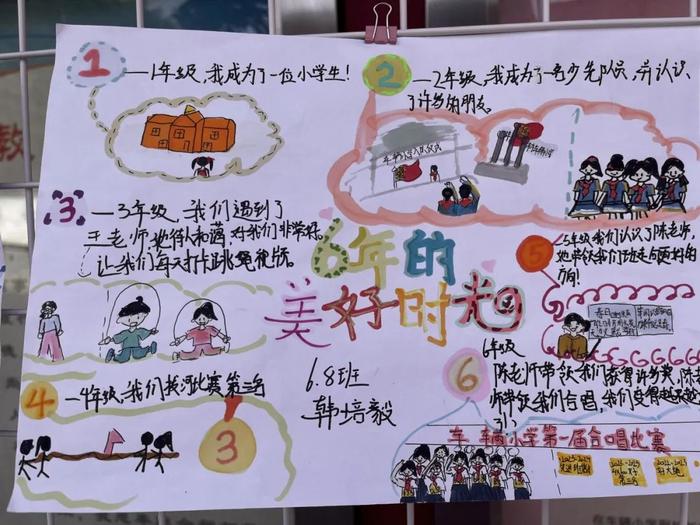 1
一1年级，我成为了一位小学生！
2
一2年级，我成为了一名少先队员，并认识
了许多的朋友。
3
一3年级，我们遇到了
王老师，她待人和蔼，对我们非常好，
让我们每天打卡跳绳视频。
6年的
美好时光
5
5年级我们认识了陈老师，
她带领我们班走向更好的
方向！
4
一4年级，我们拔河比赛第三名
3
6.8班
韩培毅
6年级
6
陈老师带领我们获得许多奖，陈老
师带领我们合唱，我们变得越来越好
了！
车辆小学第一届合唱比赛